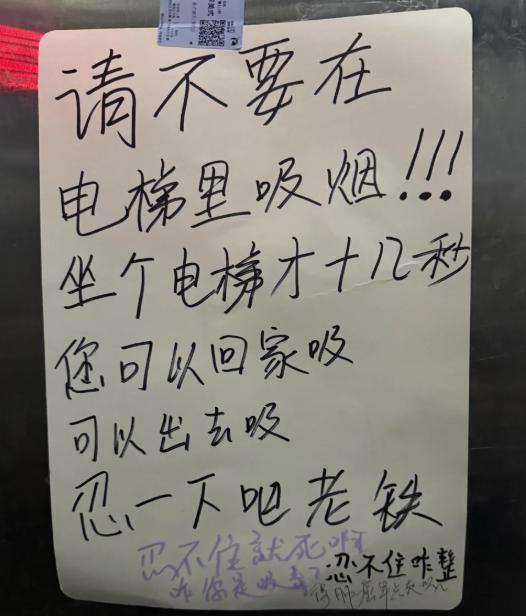 请不要在
电梯里吸烟!!!
坐个电梯才十几秒
您可以回家吸
可以出去吸
忍一下吧老铁
忍不住就死啊
忍不住咋整
咋你是吸毒了